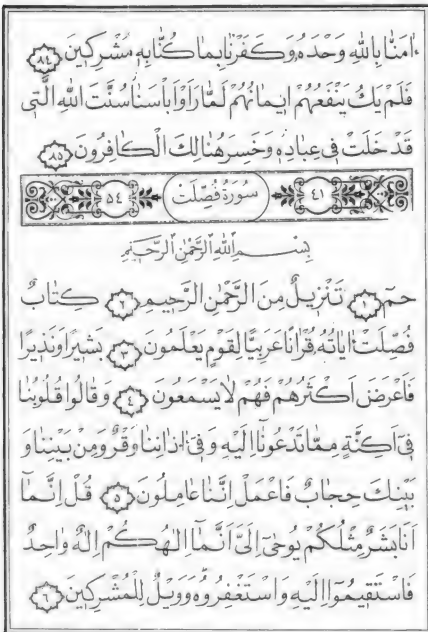 اٰمَنَّا بِاللّٰهِ وَحْدَهُ وَكَفَرْنَا بِمَا كُنَّا بِهٖ مُشْرِكٖينَ ٨٤
فَلَمْ يَكُ يَنْفَعُهُمْ اٖيمَانُهُمْ لَمَّا رَاَوْا بَاْسَنَا سُنَّتَ اللّٰهِ الَّتٖى
قَدْ خَلَتْ فٖى عِبَادِهٖ وَخَسِرَ هُنَالِكَ الْكَافِرُونَ ٨٥
٤١ سُورَةُ فُصِّلَتْ ٥٤
بِسْمِ اللّٰهِ الرَّحْمٰنِ الرَّحٖيمِ
حٰمٓ ١ تَنْزٖيلٌ مِنَ الرَّحْمٰنِ الرَّحٖيمِ ٢ كِتَابٌ
فُصِّلَتْ اٰيَاتُهُ قُرْاٰنًا عَرَبِيًّا لِقَوْمٍ يَعْلَمُونَ ٣ بَشٖيرًا وَنَذٖيرًا
فَاَعْرَضَ اَكْثَرُهُمْ فَهُمْ لَا يَسْمَعُونَ ٤ وَقَالُوا قُلُوبُنَا
فٖٓى اَكِنَّةٍ مِمَّا تَدْعُونَٓا اِلَيْهِ وَفٖٓى اٰذَانِنَا وَقْرٌ وَمِنْ بَيْنِنَا وَ
بَيْنِكَ حِجَابٌ فَاعْمَلْ اِنَّنَا عَامِلُونَ ٥ قُلْ اِنَّمَٓا
اَنَا بَشَرٌ مِثْلُكُمْ يُوحٰٓى اِلَىَّ اَنَّمَٓا اِلٰهُكُمْ اِلٰهٌ وَاحِدٌ
فَاسْتَقٖيمُٓوا اِلَيْهِ وَاسْتَغْفِرُوهُ وَوَيْلٌ لِلْمُشْرِكٖينَ ٦